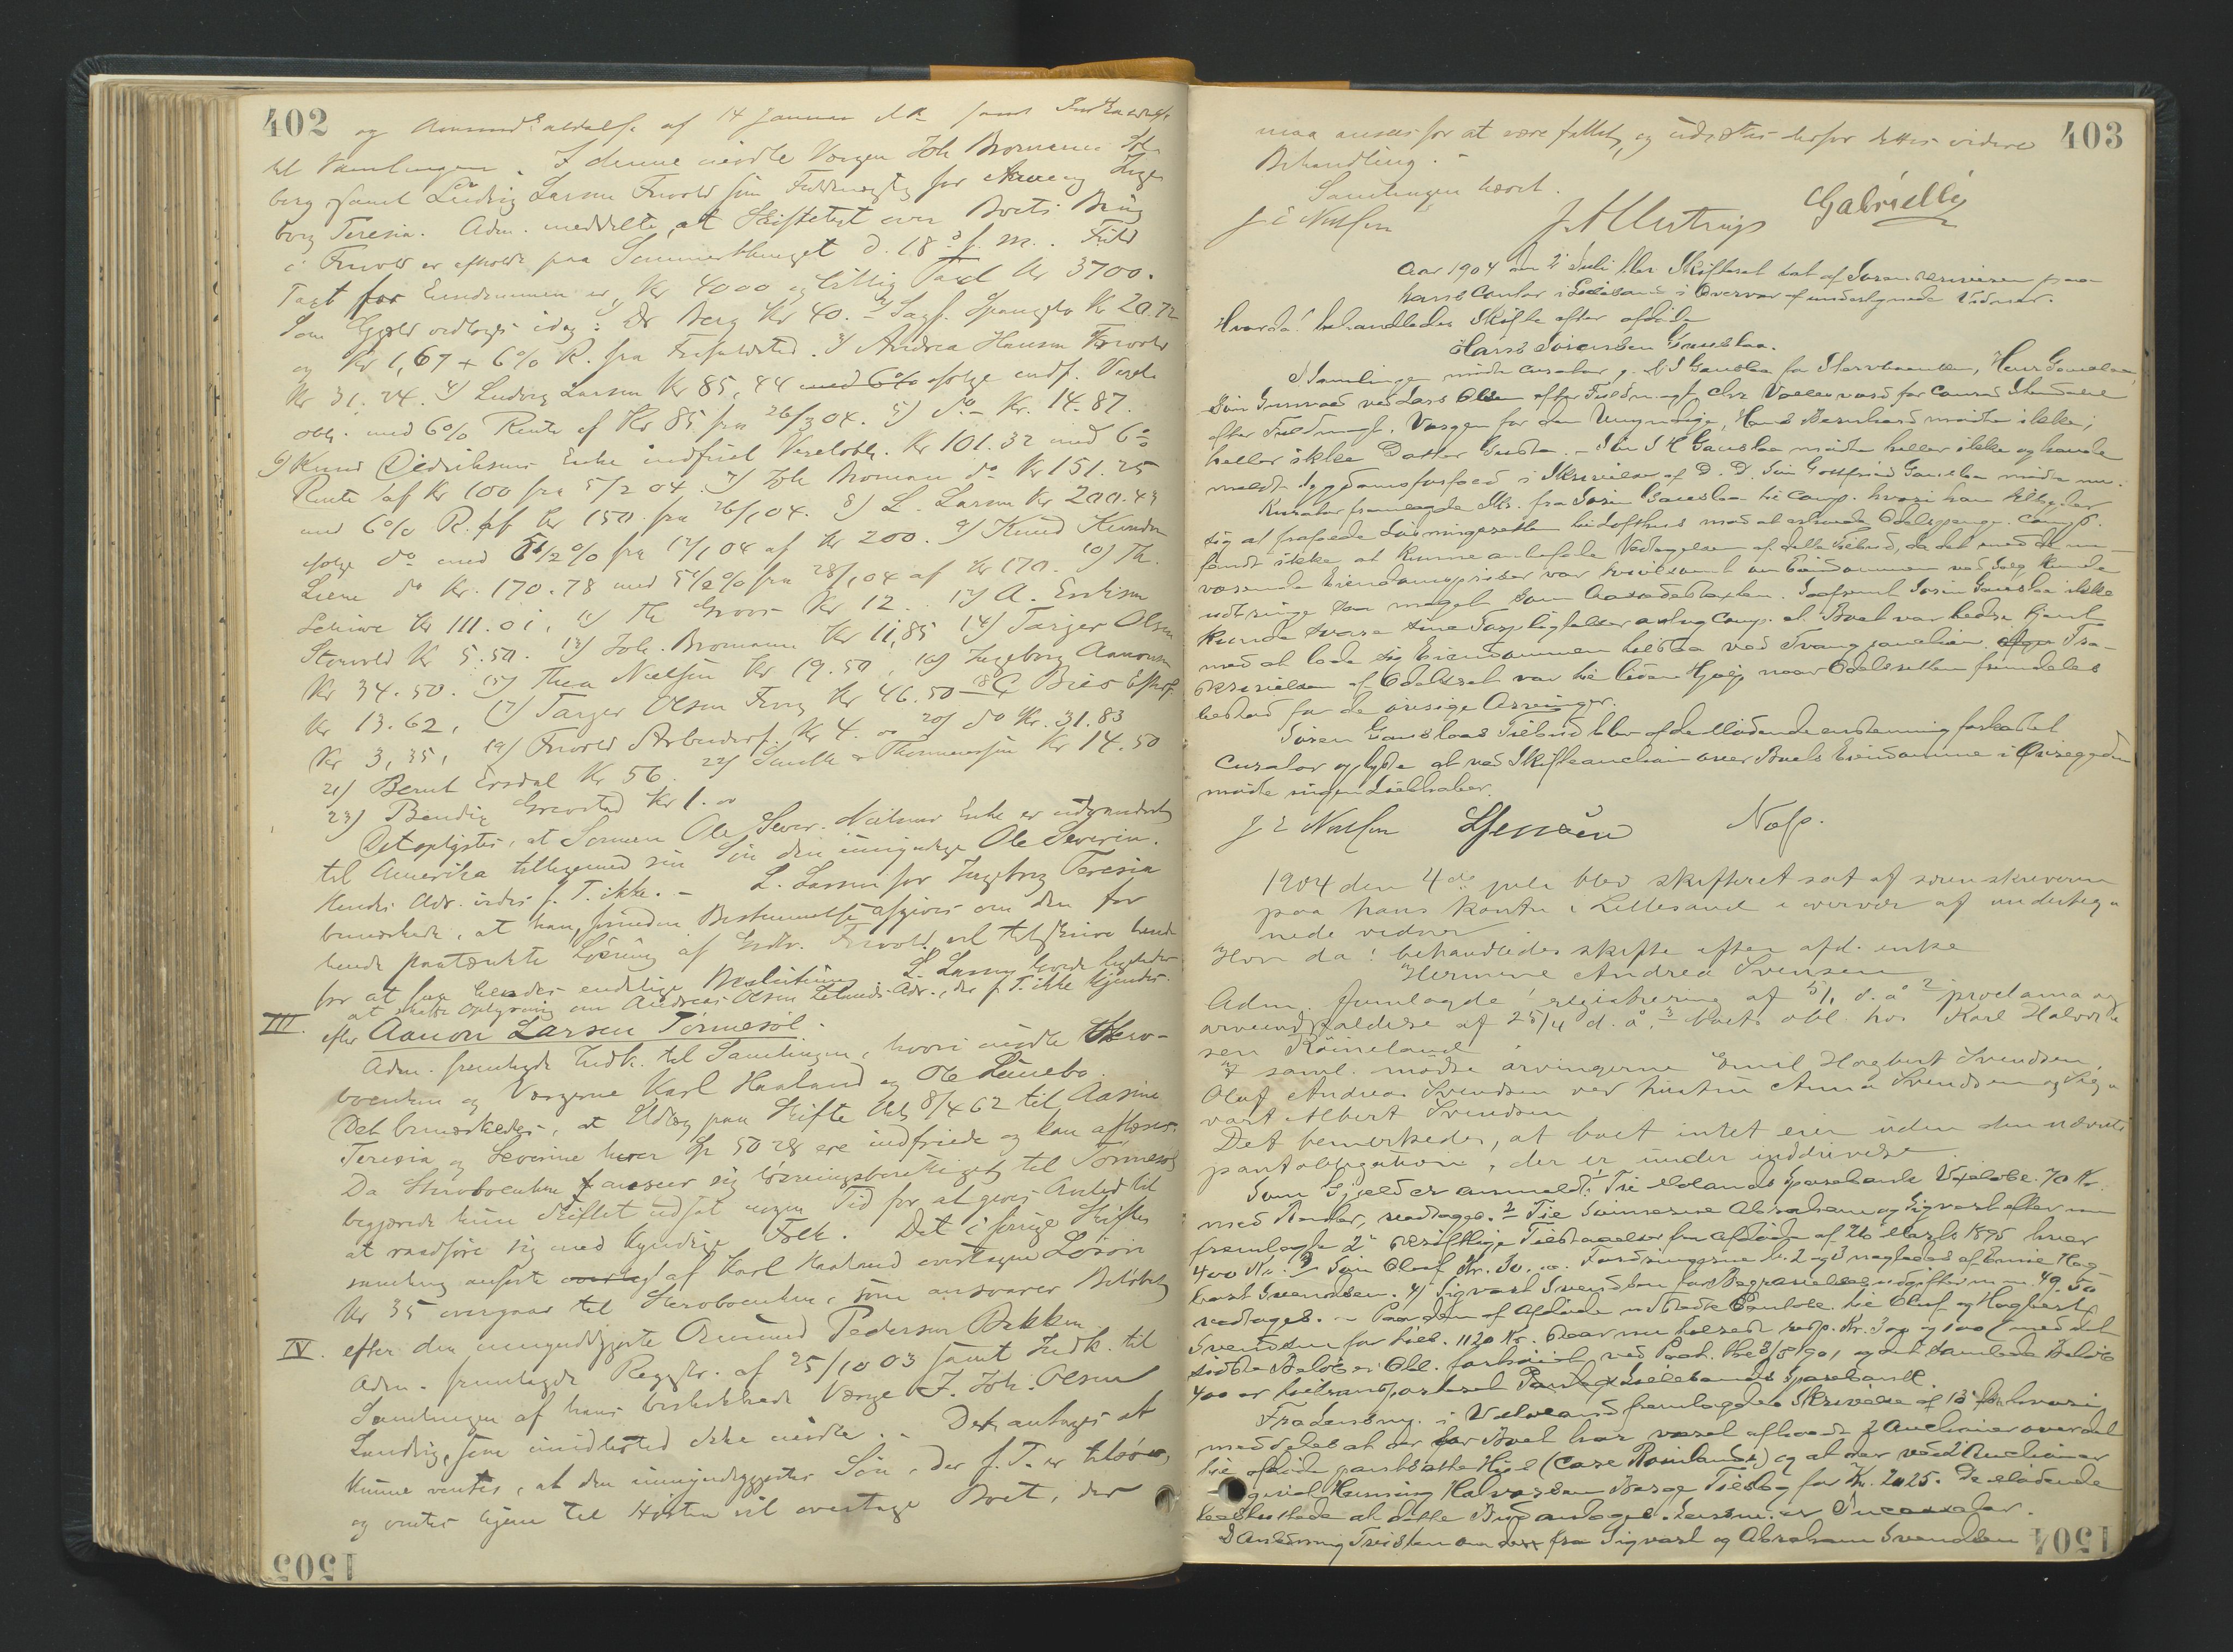 402
og Arveindkaldelse af 14 Januar d. A. samt Indkaldelse
til Samlingen. I denne mødte Vergen Joh Bromann
berg samt Ludvig Larsen Fuvold som Fuldmægtig for Inge
borg Teresia. Adm. meddelte, at Skiftetaxt over Boets
i Fuvold er afholdt paa Sommerthinget d. 18 f. M. Fuld
Taxt for Eiendommen er Kr 4000 og billig Taxt Kr 3700.
Som Gjæld vedtoges idag: Dr Berg Kr 40. 2) Sagf. Spangelo Kr 20.72
og Kr 1,67 + 6% R. fra 3) Andrea Hansen Fuvold
Kr 31,24. 4) Ludvig Larsen Kr 85,44 med 6% ifølge endf. Vexel
obl. med 6% Rente af Kr 85 fra 26/3 04. 5) do - Kr. 14.87.
6) Knud Didriksens Enke indfriet Vexelobl. Kr 101.32 med 6%
Rente af Kr 100 fra 5/2 04. 7) Joh Bromann do Kr 151.25
med 6% R. af Kr 150 fra 26/1 04. 8) L. Larsen Kr 200.43
ifølge do med 5 1/2% fra 12/1 04 af Kr 200. 9) Knud Knudsen
Liene do Kr. 170.78 med 5 1/2% fra 28/1 04 af Kr 170. 10) Th.
Kr 111.01, 11) Th Groos Kr 12. 12) A. Eriksen
Kr 5.50. 13) Joh. Bromann Kr 11,85 14) Tarjer Olsen
Kr 34.50. 15) Thea Nielsen Kr 19.50, 16) Ingeborg Aanonsen
Kr 13.62, 17) Tarjer Olsen Kr 46.50 18) C Bies Efterf.
Kr 3,35, 19) Fuvold Arbeiderf. Kr 4.00 20) do Kr. 31.83
21) Bernt Ersdal Kr 56. 22) Thommessen Kr 14.50
23) Bendix Grevstad Kr 1.00
Det oplystes, at Sønnen Ole Sever. Nielsens Enke er udvandret
til Amerika tilligemed sin Søn den umyndige Ole Severin.
Hendes Adr. vides f. T. ikke. - L. Larsen for Ingeborg Teresia
bemærkede, at han, forinden Bestemmelse afgives om den for
hende paatænkte Løsning af Fuvold, vil tilskrive hende
for at faa hendes endelige Beslutning. L. Larsen lovede
at skaffe Oplysning om Andreas Olsen Adr., der f. T. ikke kjendes.
III. efter Aanon Larsen Tørmesøl.
Adm. fremlagde Indk. til Samlingen, hvori mødte Stervo-
boenken og Vergerne Karl Haaland og Ole Lunebo.
Det bemærkedes, at Udlæg paa Skifte 8/4 62 til Aasine
Teresia og Severine hver Sp 50 28 ere indfriede og kan aflæses.
Da Stervboenken anseer sig løsningsberettiget til Tørmesøl
begjærede hun Skiftet udsat nogen Tid for at gives Anled. til
at raadføre sig med kyndige Folk. Det i forrige Skifte
samling anførte overtag af Karl Haaland overtagne Løsøre
Kr 35 overgaar til Stervboenken, som ansvarer Beløbet
IV. efter den umyndiggjorte Omund Pedersen Bekken
Adm. fremlagde Registr. af 25/10 03 samt Indk. til
Samlingen af hans beskikkede Verge J. Joh. Olsen
Landvig, som imidlertid ikke mødte. - Det antages at
kunne ventes, at den umyndiggjortes Søn, der f. T. er tilsøs,
og ventes hjem til Høsten vil overtage Boet, der
1505
403
maa ansees for at være fallit, og udsættes derfor dettes videre
Behandling. -
Samlingen hævet.
J E Nielsen Gabrielli
Aar 1904 den 2 Juli blev Skifteret sat af Sorenskriveren paa
hans Contor i Lillesand i Overvær af undertegnede Vidner.
Hvorda! behandledes Skifte efter afdøde
Hans Sørensen Gauslaa.
I Samlingen mødte curator g. S Gauslaa for Stervboenken, Hans Gauslaa,
Søn Gunvald ved Lars Olsen efter Fuldmagt, Chr Vallesværd for Conrad
efter Fuldmagt. Vergen for den Umyndige, Hans Bernhard mødte ikke;
heller ikke Datter Gusta. - Søn S H Gauslaa mødte heller ikke og havde
meldt Sygdomsforfald i Skrivelse af D. D. Søn Gottfried Gauslaa mødte nu.
Kurator fremlagde Skr. fra Søren Gauslaa til Comp. hvori han tilbyder
sig at frafalde Løsningsretten til Lofthus mod at erholde Odelspenge. Comp.
fandt ikke at kunne anbefale Vedtagelsen af dette Tilbud, da det med de nu-
værende Eiendomspriser var tvivlsomt om Eiendommen ved Salg kunde
udbringe saa meget som Aasædestaxten. Saafremt Søren Gauslaa ikke
kunde svare sine Forpligtelser antog Comp. at Boet var bedre tjent
med at lade sig Eiendommen tilslaa ved Tvangsauction. Fra-
skrivelsen af Odelsret var til liden Hjælp naar Odelsretten fremdeles
bestod for de øvrige Arvinger.
Søren Gauslaas Tilbud blev af de Mødende enstemmig forkastet
Curator oplyste at ved Skifteauction over Boets Eiendomme i Øvregaden
mødte ingen Liebhaber.
J E Nielsen SJensen Nolp.
1904 den 4de juli blev skifteret sat af sorenskriveren
paa hans kontor i Lillesand i overvær af underteg-
nede vidner
Hvor da! behandledes skifte efter afd. enke
Hermine Andrea Svensen
Adm. fremlagde 1 registrering af 5/1 d. å 2 proclama og
arveindkaldelse af 25/4 d. å, 3 boets obl. hos Karl Halvor-
sen Röineland
I saml. mödte arvingerne Emil Hagbert Svendsen,
Oluf Andreas Svendsen ved hustru Anna Svendsen og Sig-
vart Albert Svendsen
Det bemerkedes, at boet intet eier uden den nævnte
pantobligation, der er under inddrivelse
Som Gjæld er anmeldt: 1 Til Molands Sparebank Vexelobl. 70 Kr.
med Renter, vedtoges. 2 Til Sønnerne Abraham og Sigvart efter nu
fremlagte 2 skriftlige Tilstaaelser fra Afdøde af 26 Marts 1895 hver
400 Kr. 3) Søn Oluf Kr. 30.00. Fordringerne No. 2 og 3 nægtedes af Emil Hag-
bart Svendsen. 4) Sigvart Svendsen for Begravelsesudgifter m.m. 49.50
vedtoges. - Paa den af Afdøde udstedte Pantobl. til Oluf og Hagbert
Svendsen for tils. 1120 Kr. staar nu tilrest resp. Kr. 300 og 100 (med det
sidste Beløb er Obl. forhøiet ved Paat. 3/8 1901, og det samlede Beløb
400 er tiltransporteret Lillesands Sparebank.
Fra Lensm. i Vestland fremlagdes Skrivelse af 13 f. M. hvori
meddeles at der for Boet har været afholdt 2 Auctioner over det
til afdøde pantsatte Huus (Carl Röinelands) og at der ved 2 Auctioner
Henning Halvorsen Tilslag for Kr. 2025. De Mødende
besluttede at dette Bud antages. Lensm. er Incassator.
I Anledning Tvisten om fra Sigvart og Abraham Svendsen
1504